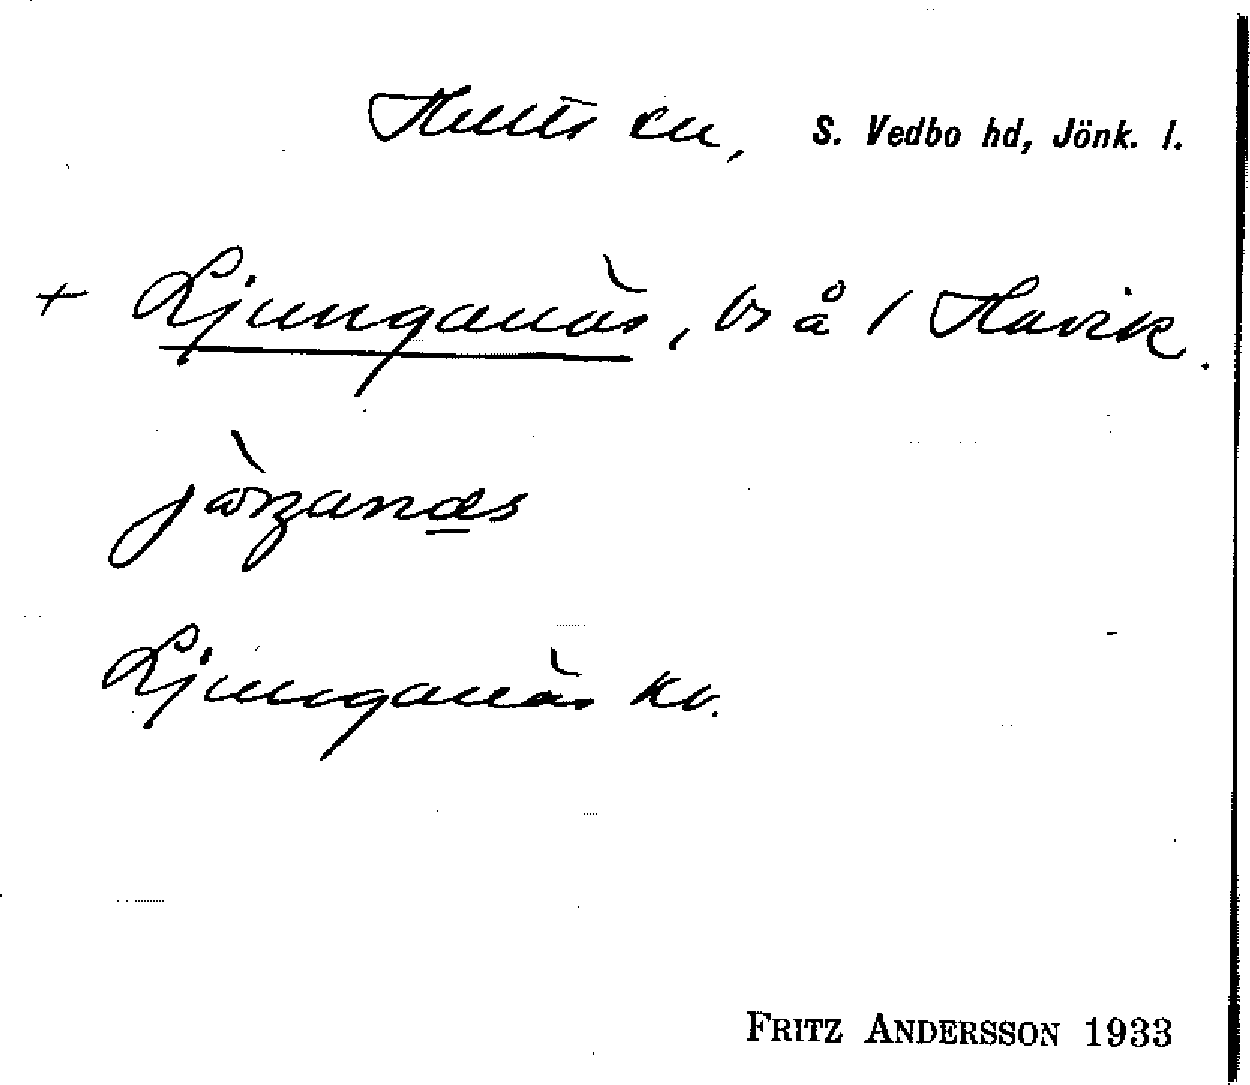 Hults sn, S. Vedbo hd, Jönk. l.
+ Ljunganäs, bs å / Havik.
Ljunganäs kv.
FRITZ ANDERSSON 1933